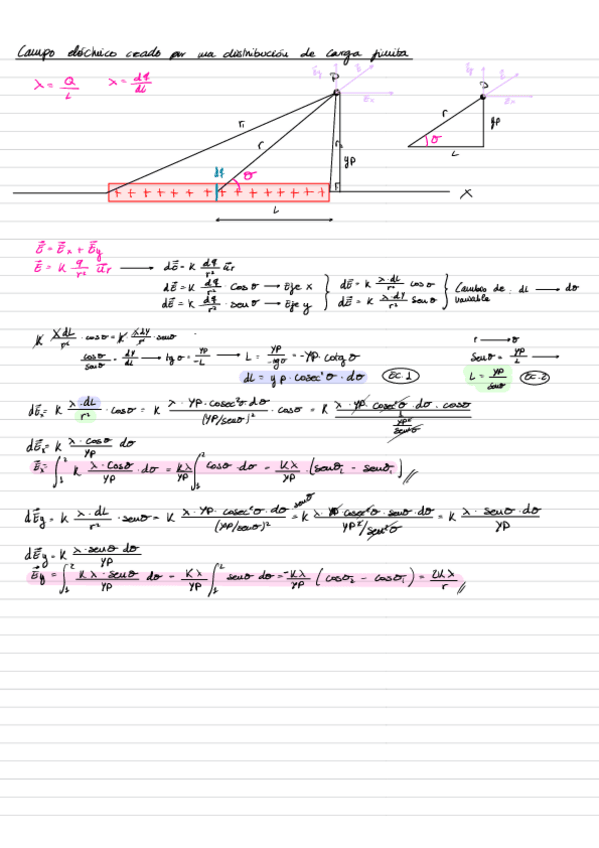 Campo eléctrico creado por una distribución de carga finita
λ = Q/L   λ = dq/dL
Ey E
P
Ex
r₁ r r₂ yp
dq θ
+ + + + + + + + + + + + + +
X
L
Ey E
P
Ex
r yp
θ
L
E⃗ = E⃗x + E⃗y
E⃗ = K q/r² u⃗r ⟶ dE⃗ = K dq/r² u⃗r
dE⃗ = K dq/r² · cosθ ⟶ Eje x } dE⃗ = K λ·dL/r² cosθ
dE⃗ = K dq/r² · senθ ⟶ Eje y } dE⃗ = K λ·dy/r² senθ
Cambio de : dL ⟶ dθ
variable
K λdL/r² · cosθ = K · λdy/r² · senθ
r ⟶ θ
cosθ/senθ = dy/dL ⟶ tgθ = yp/-L ⟶ L = yp/-tgθ = -yp · cotgθ
senθ = yp/L ⟶
dL = yp · cosec²θ · dθ (EC.1)
L = yp/senθ (EC.2)
dE⃗x = K λ·dL/r² · cosθ = K λ · yp · cosec²θ dθ/(yp/senθ)² cosθ = K λ · yp · cosec²θ · dθ · cosθ / yp²/sen²θ
dE⃗x = K λ · cosθ/yp dθ
E⃗x = ∫₁² K λ · cosθ/yp · dθ = Kλ/yp ∫₁² cosθ dθ = Kλ/yp · (senθ₂ - senθ₁)
dE⃗y = K λ·dL/r² · senθ = K λ · yp · cosec²θ dθ/(yp/senθ)² senθ = K λ · yp cosec²θ · senθ · dθ / yp²/sen²θ = K λ · senθ dθ/yp
dE⃗y = K λ · senθ dθ/yp
E⃗y = ∫₁² Kλ · senθ/yp dθ = Kλ/yp ∫₁² senθ dθ = -Kλ/yp (cosθ₂ - cosθ₁) = 2Kλ/r